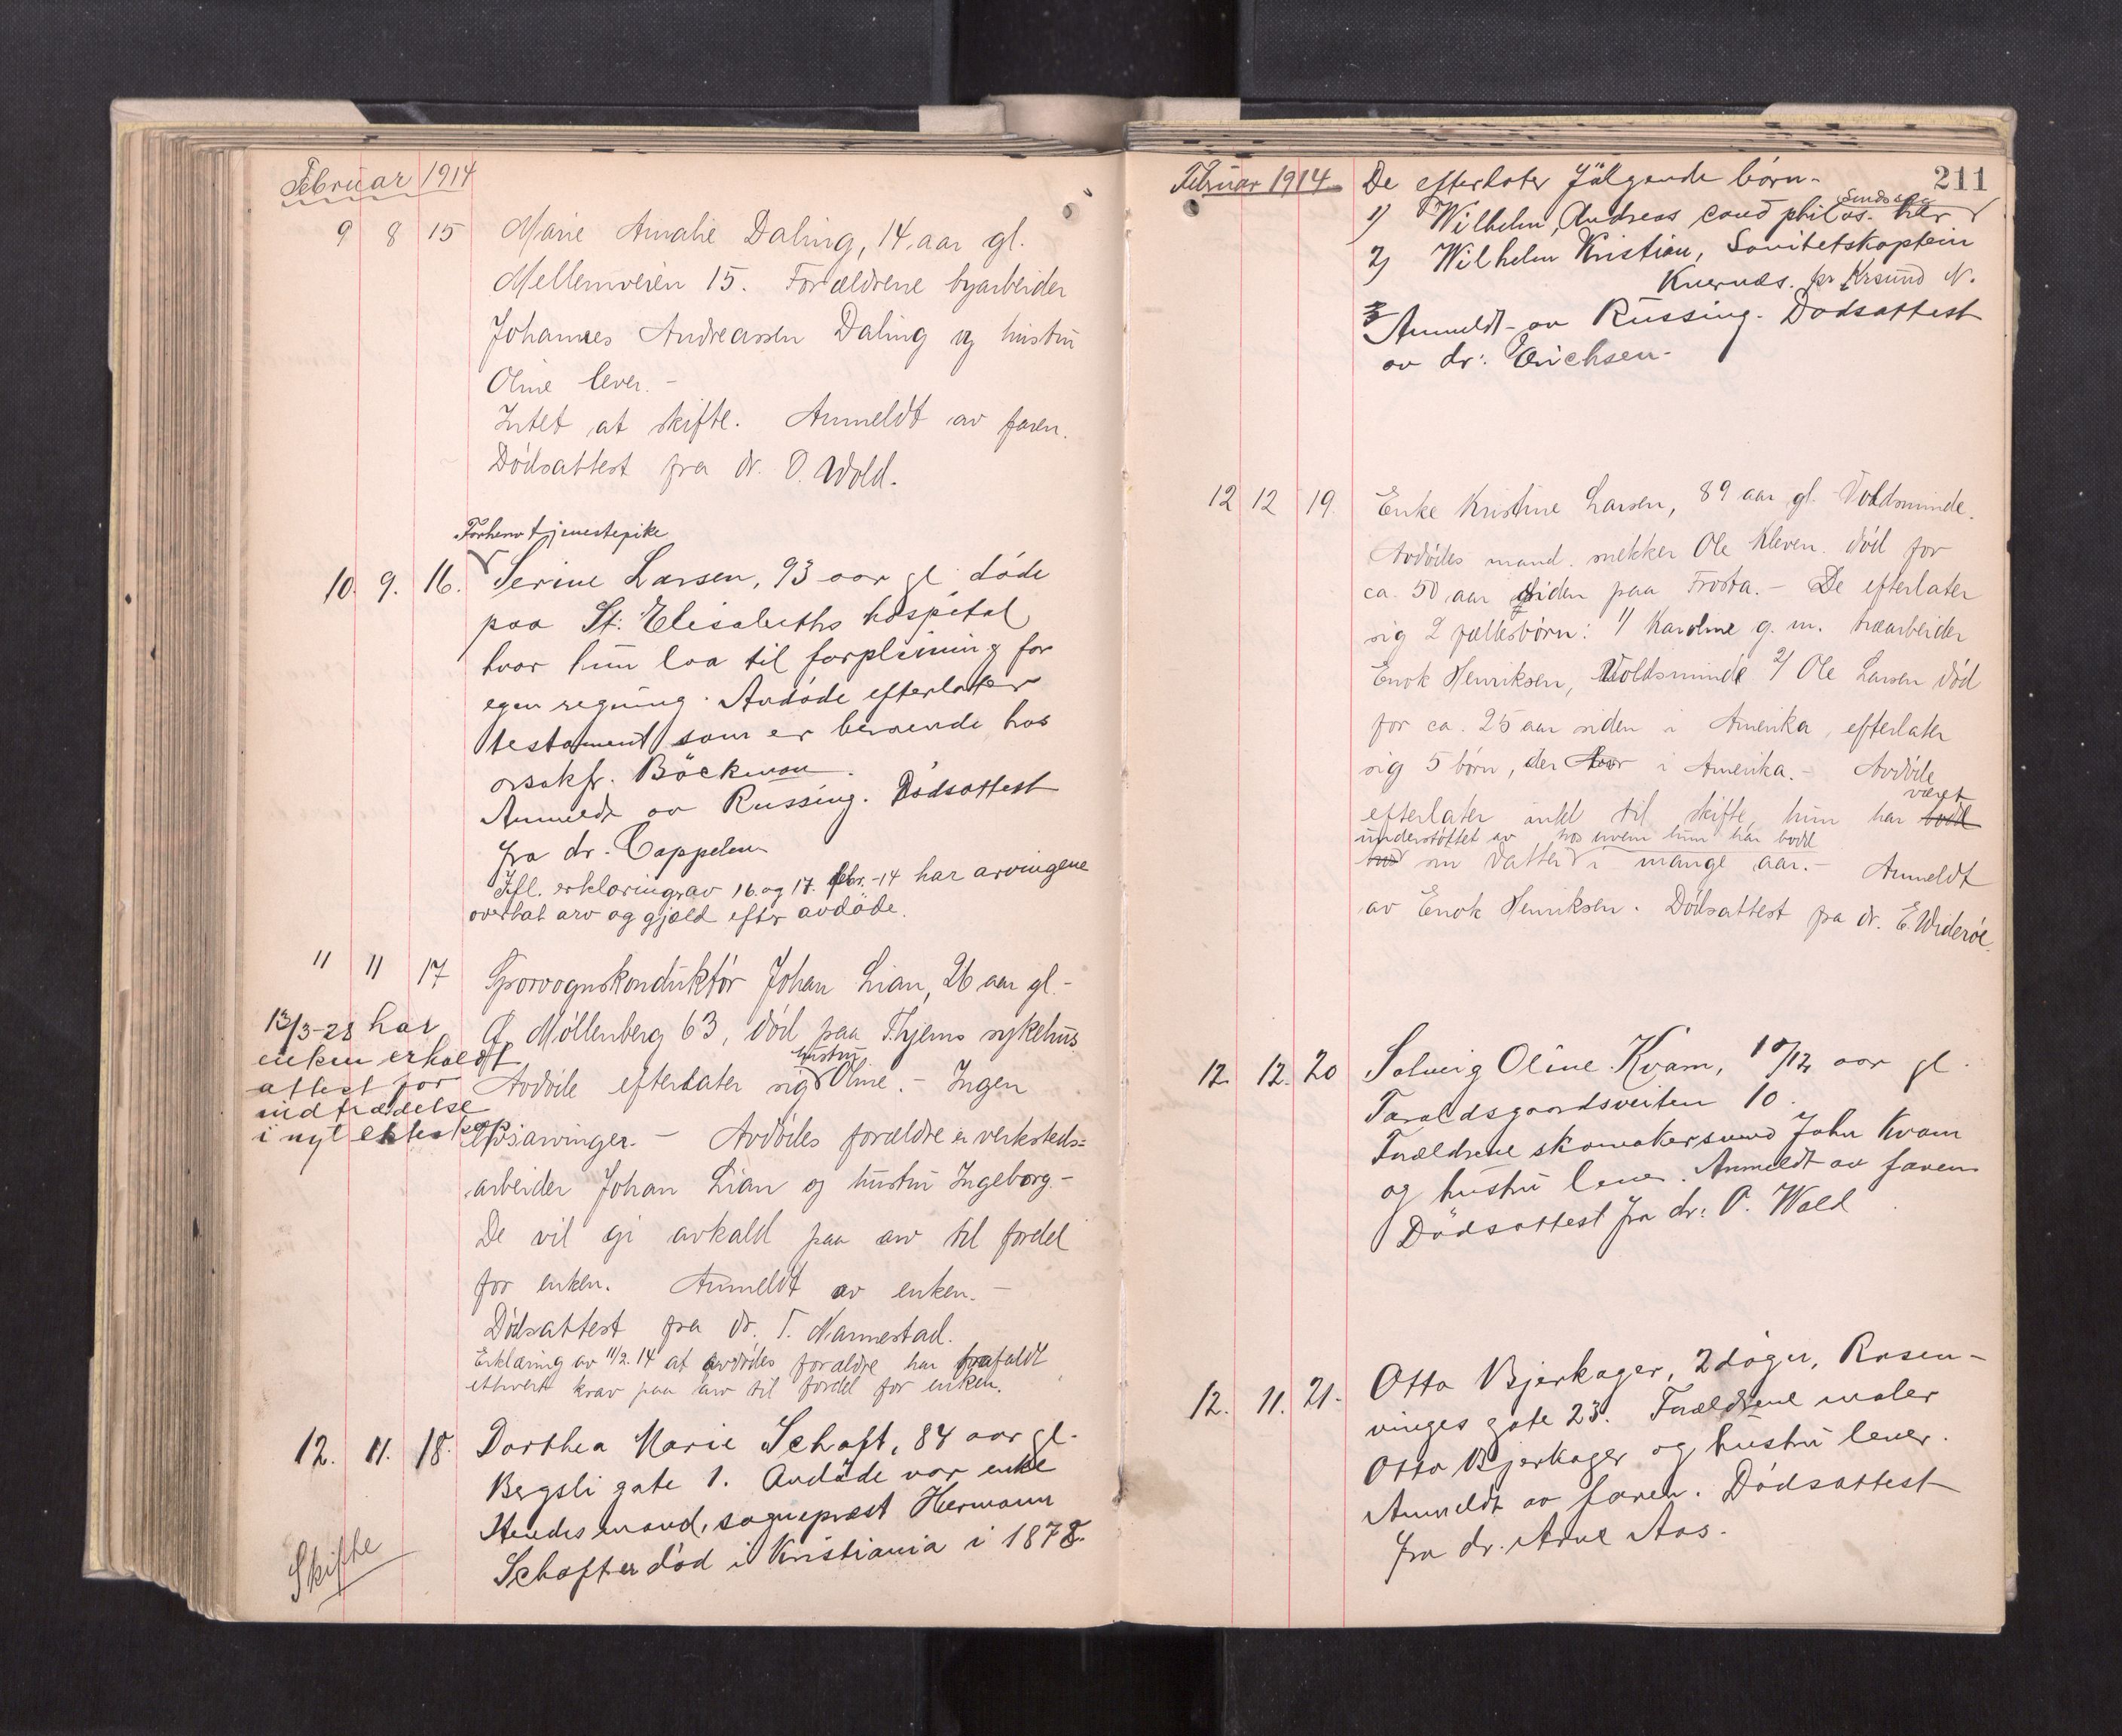 Februar 1914
9 8 15 Marie Amalie Daling, 14 aar gl.
Mellemveien 15. Forældrene byarbeider
Johannes Andreassen Daling og hustru
Oline lever. -
Intet at skifte. Anmeldt av faren.
Dödsattest fra dr. O. Wold.
Forhenv tjenestepike
10. 9. 16. Serine Larsen, 93 aar gl döde
paa St: Elisabeths hospital
hvor hun laa til forpleining for
egen regning. Avdöde efterlater
testament som er beroende hos
orsakfr. Böckman.
Anmeldt av Russing. Dödsattest
fra dr. Cappelen
Ifl. erklæring av 16. og 17. febr. -14 har arvingene
overtat arv og gjæld efter avdöde.
11 11 17 Sporvognskonduktör Johan Lian, 26 aar gl. -
13/3-28 har
enken erholdt
attest for
indtrædelse
i nyt ekteskap
Ø. Möllenberg 63, död paa Thjems sykehus
hustru
Avdöde efterlater sig Oline. - Ingen
livsarvinger. - Avdödes forældre er verksteds=
arbeider Johan Lian og hustru Ingeborg. -
De vil gi avkald paa arv til fordel
for enken. Anmeldt av enken. -
Dödsattest fra dr. T. Nannestad.
Erklæring av 11/2. 14 at avdödes forældre har frafaldt
ethvert krav paa arv til fordel for enken.
12. 11. 18. Dorthea Marie Schaft, 84 aar gl.
Bergsli gate 1. Avdöde var enke
Hendes mand, sogneprest Hermann
Schaft er död i Kristiania i 1878.
Skifte
Februar 1914. De efterlater fölgende börn - 211
1) Wilhelm, Andreas cand philos. her
2) Wilhelm Kristian, Sanitetskaptein
Kvernæs. pr Krsund N.
Anmeldt av Russing. Dödsattest
av dr: Erichsen -
12 12 19. Enke Kristine Larsen, 89 aar gl. Voldsminde.
Avdödes mand snekker Ole Kleven död for
ca. 50 aar siden paa Frosta. - De efterlater
sig 2 fællesbörn: 1/ Karoline g. m. træarbeider
Enok Henriksen, Voldsminde 2/ Ole Larsen död
for ca. 25 aar siden i Amerika, efterlater
sig 5 börn, der bor i Amerika. - Avdöde
været
efterlater intet til skifte, hun har bodd
understöttet av hos hvem hun har bodd
hos sin datter i mange aar. - Anmeldt
av Enok Henriksen. Dödsattest fra dr. E. Wideröe.
12. 12. 20 Solveig Oline Kvam, 10/12 aar gl.
Taraldsgaardsveiten 10.
Forældrene skomakersvend John Kvam
og hustru lever. Anmeldt av faren
Dödsattest fra dr: O. Wold
12. 11. 21. Otto Bjerkager, 2 döger, Rosen-
vinges gate 23. Forældrene maler
Otto Bjerkager og hustru lever.
Anmeldt av faren. Dödsattest
fra dr. Arne Aas.